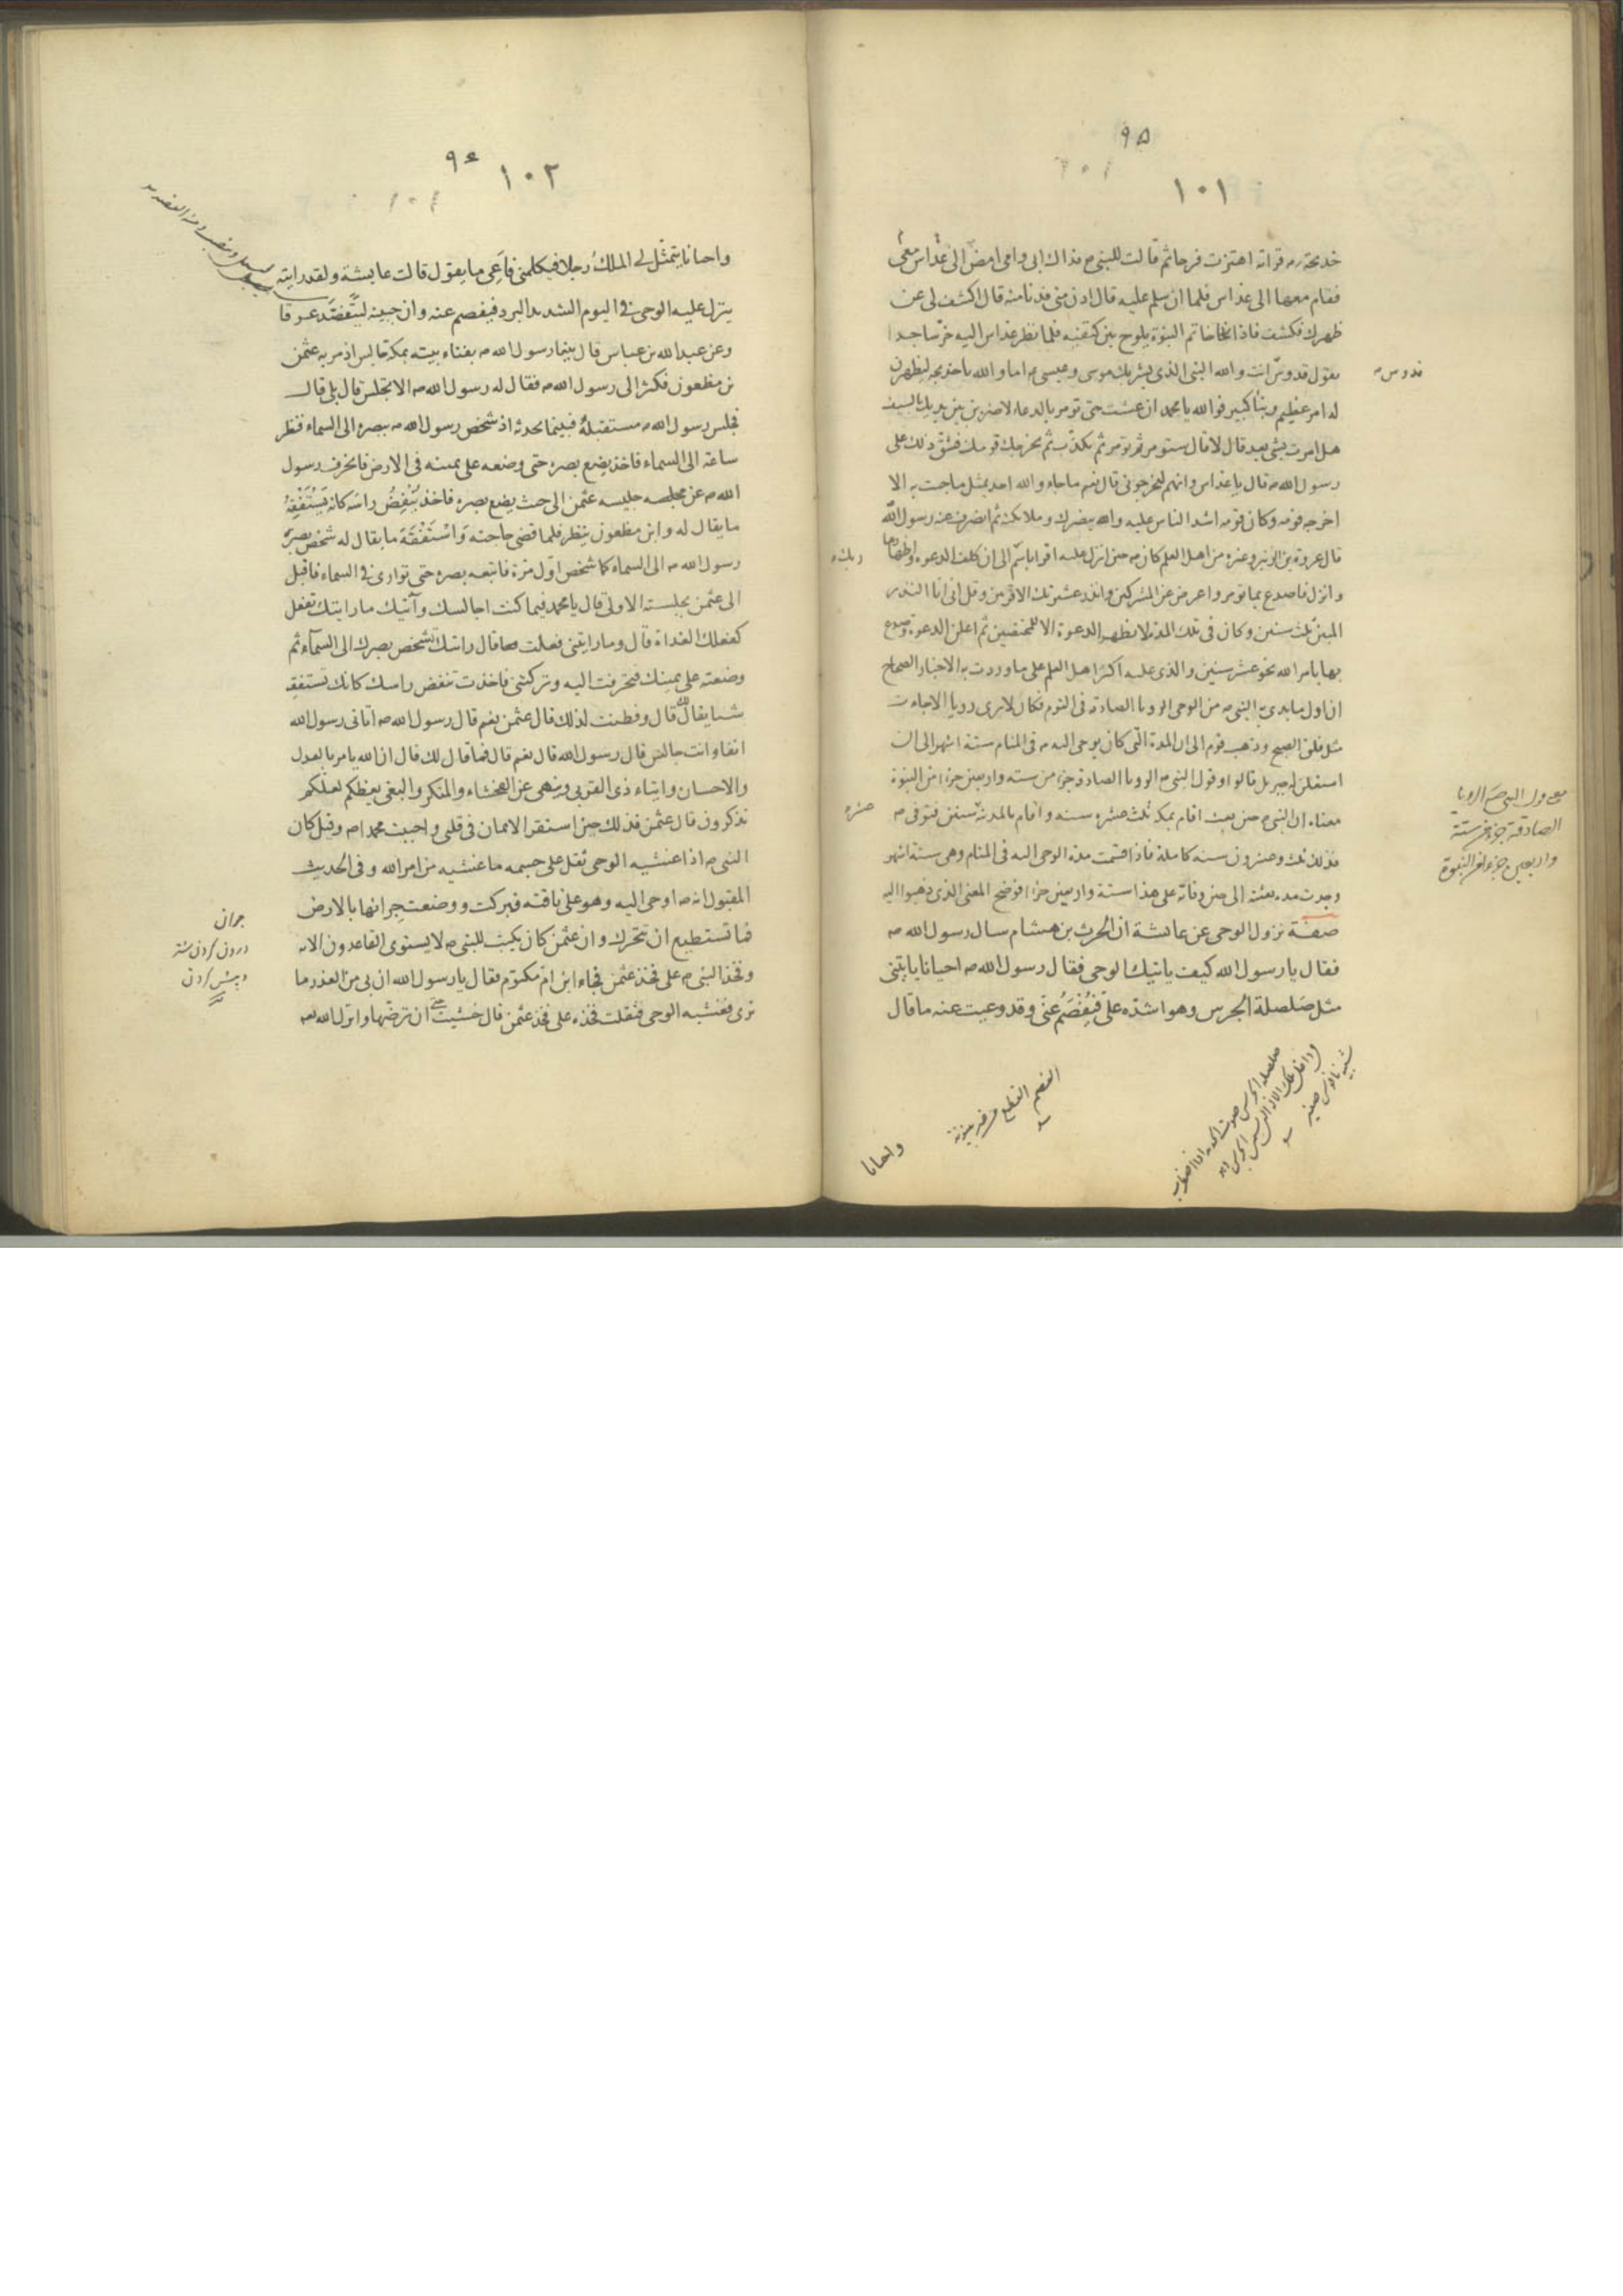 ٩٥
١٠١
خديجة قراته اهتزت فرحا ثم قالت للنبي م فداك ابي وامي امض الى عداس معي
فقام معها الى عداس فلما ان سلم عليه قال ادن مني فدنا منه قال اكشف لي عن
ظهرك فكشف فاذا خاتم النبوة يلوح بين كتفيه فلما نظر عداس اليه خر ساجدا
يقول قدوس انت والله النبي الذي بشر بك موسى وعيسى م اما والله يا خديجة ليظهرن
قدوس
له امر عظيم ونبأ كبير فوالله يا محمد ان عشت حتى تومر بالدعاء لاضربن بين يديك بالسيف
هل امرت بشي بعد قال لا قال ستومر ثم تومر ثم تكذب ثم يخرجك قومك فشق ذلك على
رسول الله ص قال يا عداس وانهم ليخرجوني قال نعم ما جاء والله احد بمثل ما جئت به الا
اخرجه قومه وكان قومه اشد الناس عليه والله ينصرك وملائكته ثم انصرف عنه رسول الله
قال عروة بن الزبير وغيره من اهل العلم كان من حين انزل عليه اقرا باسم الى ان كلف الدعوة واظهارها
وانزل فاصدع بما تومر واعرض عن المشركين وانذر عشيرتك الاقربين وقل اني انا النذير
المبين ثلث سنين وكان في تلك المدة لا يظهر الدعوة الا للمختصين ثم اعلن الدعوة وصدع
بها بامر الله نحو عشر سنين والذي عليه اكثر اهل العلم على ما وردت به الاخبار الصحاح
ان اول ما بدئ به النبي ص من الوحي الرويا الصادقة في النوم فكان لا يرى رويا الا جاءت
مثل فلق الصبح وذهب قوم الى ان المدة التي كان يوحى اليه ص في المنام ستة اشهر الى ان
استعلن له جبريل قالوا وقول النبي م الرويا الصادقة جزء من ستة واربعين جزءا من النبوة
الصادقة جزء من ستة
واربعين جزءا من النبوة
معناه ان النبي م حين بعث اقام بمكة ثلث عشرة سنة واقام بالمدينة سنين فتوفي ص
عشره
فذلك ثلث وعشرون سنة كاملة فاذا قسمت مدة الوحي اليه في المنام وهي ستة اشهر
وجدت مدة بعثته الى حين وفاته على هذا ستة واربعين جزءا فوضح المعنى الذي ذهبوا اليه
صفة نزول الوحي عن عايشة ان الحرث بن هشام سال رسول الله ص
فقال يا رسول الله كيف ياتيك الوحي فقال رسول الله ص احيانا ياتيني
مثل صَلصلة الجرس وهو اشده علي فيُفْصَمُ عني وقد وعيت عنه ما قال
واحيانا
٩٦
١٠٢
واحيانا يتمثل لي الملك رجلا فيكلمني فاَعِي ما يقول قالت عايشة ولقد رايته
ينزل عليه الوحي في اليوم الشديد البرد فيفصم عنه وان جبينه ليتفصد عرقا
وعن عبد الله بن عباس قال بينما رسول الله ص بفناء بيته بمكة جالس اذ مر به عثمن
بن مظعون فكشر الى رسول الله ص فقال له رسول الله ص الا تجلس قال بلى قال
فجلس رسول الله ص مستقبله فبينما يحدثه اذ شخص رسول الله ص ببصره الى السماء فنظر
ساعة الى السماء فاخذ يضع بصره حتى وضعه على يمينه في الارض فانحرف رسول
الله ص عن مجلسه جليسه عثمن الى حيث يضع بصره فاخذ ينغض راسه كانه يستفقه
ما يقال له وابن مظعون ينظر فلما قضى حاجته واستفقه ما يقال له شخص بصر
رسول الله ص الى السماء كما شخص اول مرة فاتبعه بصره حتى توارى في السماء فاقبل
الى عثمن بجلسته الاولى قال يا محمد فيما كنت اجالسك وآتيك ما رايتك تفعل
كفعلك الغداة قال وما رايتني فعلت قال رايتك تشخص بصرك الى السماء ثم
وضعته على يمينك فتحرفت اليه وتركتني فاخذت تنغض راسك كانك تستفقه
شيا يقال لك قال وفطنت لذلك قال عثمن نعم قال رسول الله ص اتاني رسول الله
انفا وانت جالس قال رسول الله قال نعم قال فما قال لك قال ان الله يامر بالعدل
والاحسان وايتاء ذي القربى وينهى عن الفحشاء والمنكر والبغي يعظكم لعلكم
تذكرون قال عثمن فذلك حين استقر الايمان في قلبي واحببت محمدا ص وقيل كان
النبي م اذا غشيه الوحي ثقل على جسمه ما غشيه من امر الله وفي الحديث
المقبول انه ص اوحي اليه وهو على ناقته فبركت ووضعت جرانها بالارض
جران
فما تستطيع ان تتحرك وان عثمن كان يكتب للنبي م لا يستوي القاعدون الاية
وفخذ النبي م على فخذ عثمن فجاء ابن ام مكتوم فقال يا رسول الله ان بي من العذر ما
ترى فغشيه الوحي فثقلت فخذه على فخذ عثمن قال خشيت ان ترضها وانزل الله